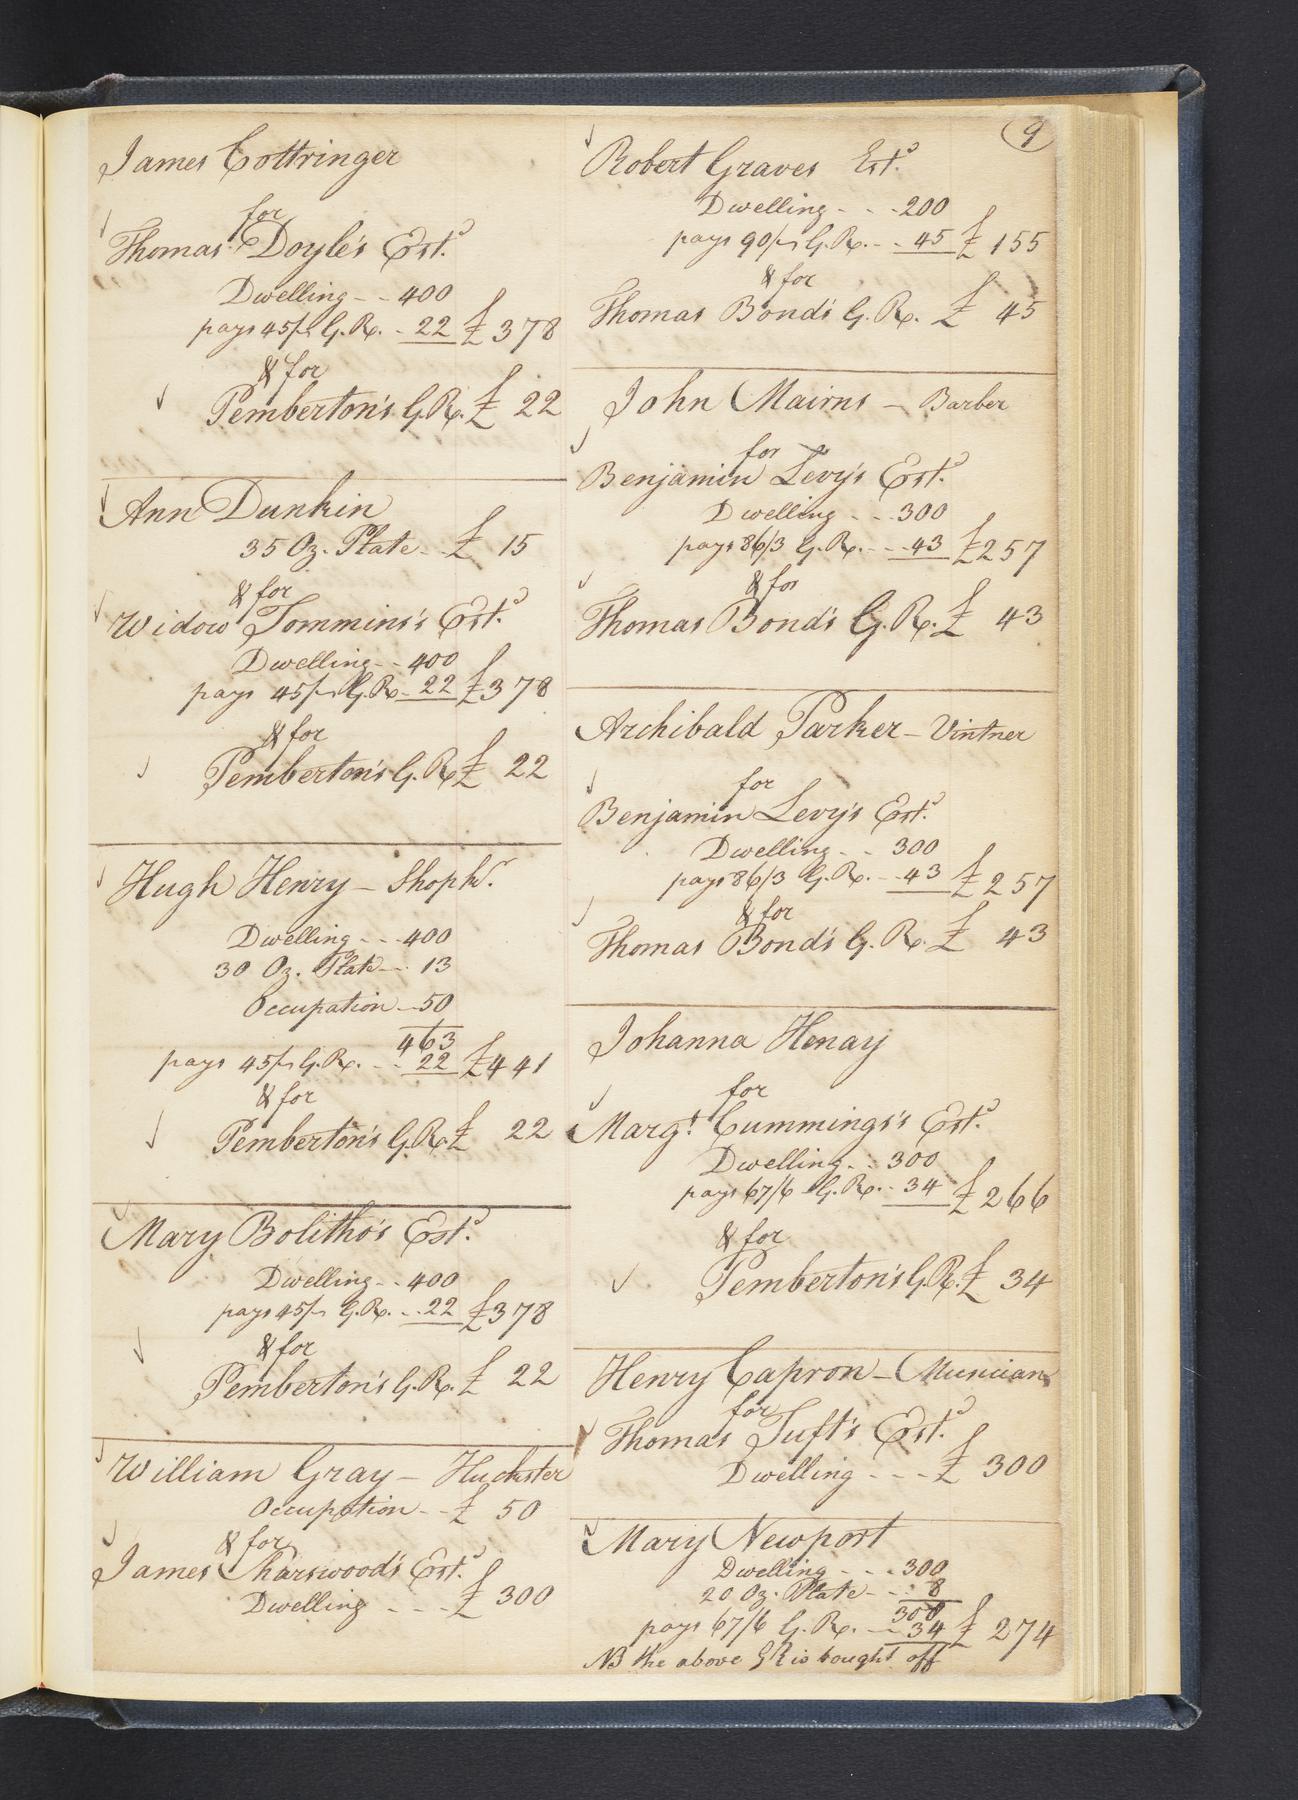 9
James Cottringer
for
Thomas Doyle's Est.d
Dwelling - - 400
pays 45/- G. R. - 22 £ 378
& for
Pemberton's G. R. £ 22
Ann Dunkin
35 Oz. Plate - - £ 15
& for
Widow Tommins's Est.d
Dwelling - - 400
pays 45/- G. R. - 22 £ 378
& for
Pemberton's G. R. £ 22
Hugh Henry - Shopkr.
Dwelling - - - 400
30 Oz. Plate - - 13
Occupation - 50
463
pays 45/- G. R. - - 22 £ 441
& for
Pemberton's G. R. £ 22
Mary Bolitho's Est.d
Dwelling - - 400
pays 45/- G. R. - - 22 £ 378
& for
Pemberton's G. R. £ 22
William Gray - Huckster
Occupation - - £ 50
& for
James Est.d
Dwelling - - - £ 300
Robert Graves Est.d
Dwelling - - - 200
pays 90/- G. R. - - 45 £ 155
& for
Thomas Bond's G. R. £ 45
John Mairns - Barber
for
Benjamin Levy's Est.d
Dwelling - - - 300
pays 86/3 G. R. - - - 43 £ 257
& for
Thomas Bond's G. R. £ 43
Archibald Parker - Vintner
for
Benjamin Levy's Est.d
Dwelling - - 300
pays 86/3 G. R. - - 43 £ 257
& for
Thomas Bond's G. R. £ 43
Johanna Henay
for
Margt. Cummings's Est.d
Dwelling - - 300
pays 67/6 G. R. - - 34 £ 266
& for
Pemberton's G. R. £ 34
Henry Capron - Musician
for
Thomas Tuft's Est.d
Dwelling - - - £ 300
Mary Newport
Dwelling - - - 300
20 Oz. Plate - - - 8
308
pays 67/6 G. R. - - 34 £ 274
NB the above GR is bought off